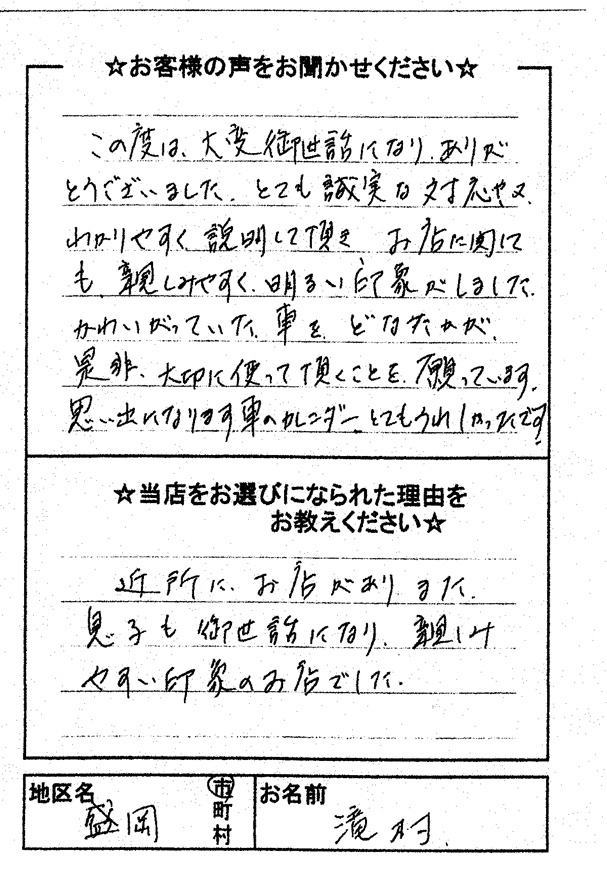 ☆お客様の声をお聞かせください☆
この度は、大変御世話になり、ありが
とうございました。とても誠実な対応や又、
わかりやすく説明して頂き お店に関して
も、親しみやすく、明るい印象がしました。
かわいがっていた、車を、どなたかが、
是非、大切に使って頂くことを、願っています。
思い出になります車のカレンダー、とてもうれしかったです!
☆当店をお選びになられた理由を
お教えください☆
近所に、お店があり、また、
息子も御世話になり、親しみ
やすい印象のお店でした。
地区名 盛岡 市 町 村 お名前 滝村